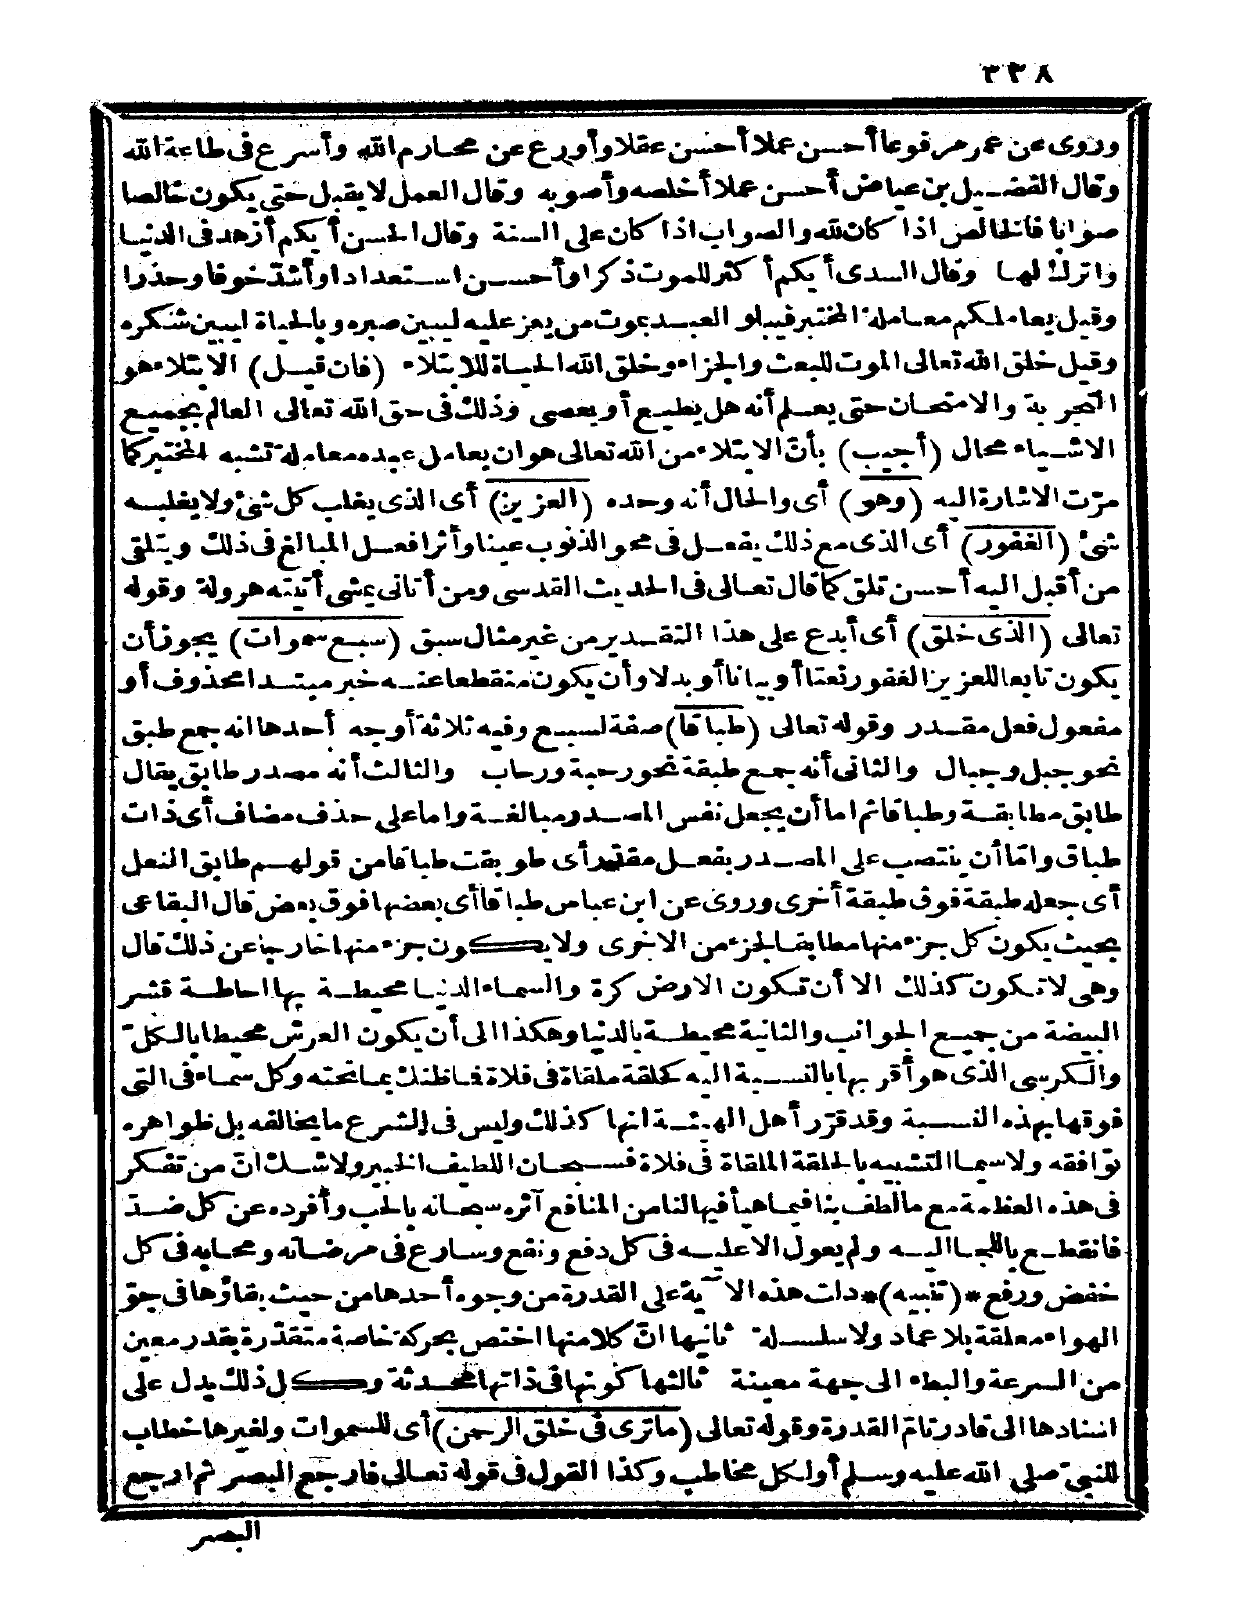 ٣٣٨
وروى عن عمر مرفوعا أحسن عملا أحسن عقلا وأورع عن محارم الله وأسرع فى طاعة الله
وقال الفضيل بن عياض أحسن عملا أخلصه وأصوبه وقال العمل لا يقبل حتى يكون خالصا
صوابا فالخالص اذا كان لله والصواب اذا كان على السنة وقال الحسن أيكم أزهد فى الدنيا
واترك لها وقال السدى أيكم أكثر للموت ذكرا وأحسن استعدادا وأشدّ خوفا وحذرا
وقيل يعاملكم معاملة المختبر فيبلو العبد بموت من يعز عليه ليبين صبره وبالحياة ليبين شكره
وقيل خلق الله تعالى الموت للبعث والجزاء وخلق الله الحياة للابتلاء (فان قيل) الابتلاء هو
التجربة والامتحان حتى يعلم أنه هل يطيع أو يعصى وذلك فى حق الله تعالى العالم بجميع
الاشياء محال (أجيب) بأنّ الابتلاء من الله تعالى هو ان يعامل عبده معاملة تشبه المختبر كما
مرّت الاشارة اليه (وهو) أى والحال أنه وحده (العزيز) أى الذى يغلب كل شئ ولا يغلبه
شئ (الغفور) أى الذى مع ذلك يفعل فى محو الذنوب عينا وأثرا فعل المبالغ فى ذلك ويتلقى
من أقبل اليه أحسن تلق كما قال تعالى فى الحديث القدسى ومن أتانى يمشى أتيته هرولة وقوله
تعالى (الذى خلق) أى أبدع على هذا التقدير من غير مثال سبق (سبع سموات) يجوز أن
يكون تابعا للعزيز الغفور نعتا أو بيانا أو بدلا وأن يكون منقطعا عنه خبر مبتدا محذوف أو
مفعول فعل مقدر وقوله تعالى (طباقا) صفة لسبع وفيه ثلاثة أوجه أحدها انه جمع طبق
نحو جبل وجبال والثانى أنه جمع طبقة نحو رحبة ورحاب والثالث أنه مصدر طابق يقال
طابق مطابقة وطباقا ثم اما أن يجعل نفس المصدر مبالغة واما على حذف مضاف أى ذات
طباق وامّا أن ينتصب على المصدر بفعل مقدر أى طوبقت طباقا من قولهم طابق النعل
أى جعله طبقة فوق طبقة أخرى وروى عن ابن عباس طباقا أى بعضها فوق بعض قال البقاعى
بحيث يكون كل جزء منها مطابقا لجزء من الاخرى ولا يكون جزء منها خارجا عن ذلك قال
وهى لا تكون كذلك الا أن تكون الارض كرة والسماء الدنيا محيطة بها احاطة قشر
البيضة من جميع الجوانب والثانية محيطة بالدنيا وهكذا الى أن يكون العرش محيطا بالكلّ
والكرسى الذى هو أقربها بالنسبة اليه كحلقة ملقاة فى فلاة فما ظنك بما تحته وكل سماء فى التى
فوقها بهذه النسبة وقد قرّر أهل الهيئة انها كذلك وليس فى الشرع ما يخالفه بل ظواهره
توافقه ولا سيما التشبيه بالحلقة الملقاة فى فلاة فسبحان اللطيف الخبير ولا شك انّ من تفكر
فى هذه العظمة مع ما لطف بنا فيما هيأ فيها لنا من المنافع آثره سبحانه بالحب وأفرده عن كل ضدّ
فانقطع باللجا اليه ولم يعول الا عليه فى كل دفع ونفع وسارع فى مرضاته ومحابه فى كل
خفض ورفع *(تنبيه)* دلت هذه الآية على القدرة من وجوه أحدها من حيث بقاؤها فى جوّ
الهواء معلقة بلا عماد ولا سلسلة ثانيها انّ كلا منها اختص بحركة خاصة متقدّرة بقدر معين
من السرعة والبطء الى جهة معينة ثالثها كونها فى ذاتها محدثة وكل ذلك يدل على
استنادها الى قادر تامّ القدرة وقوله تعالى (ما ترى فى خلق الرحمن) أى للسموات ولغيرها خطاب
للنبىّ صلى الله عليه وسلم أو لكل مخاطب وكذا القول فى قوله تعالى فارجع البصر ثم ارجع
البصر